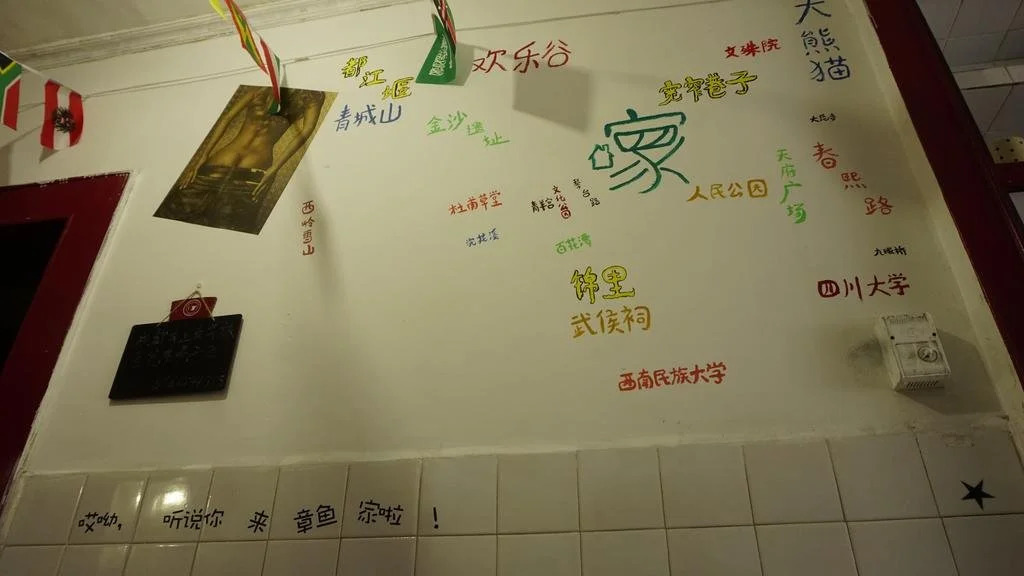 大熊猫
欢乐谷
文殊院
都江堰
宽窄巷子
青城山
金沙遗址
家
大慈寺
春熙路
天府广场
人民公园
杜甫草堂
青羊宫
文化公园
琴台路
西岭雪山
浣花溪
百花潭
九眼桥
锦里
四川大学
武侯祠
西南民族大学
哎呦，听说你来章鱼家啦！